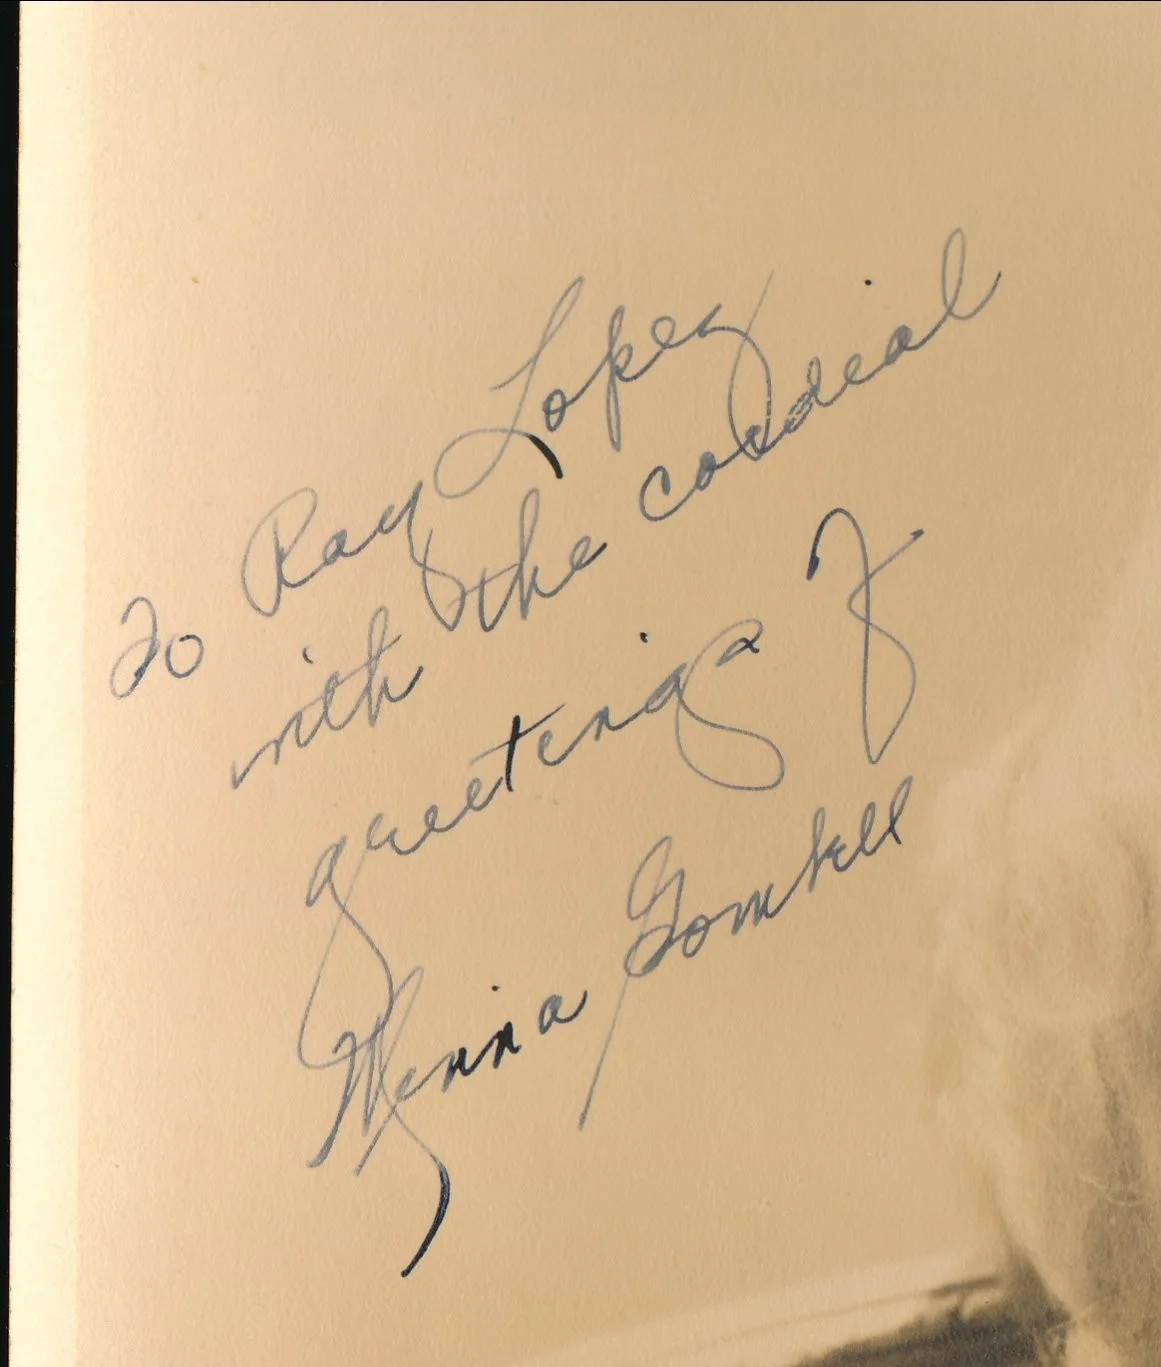 To Ray Lopez
with the cordial
greetings of
Minna Gombell